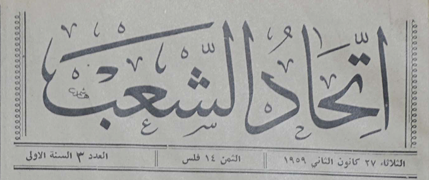 اتحاد الشعب
الثلاثاء ٢٧ كانون الثاني ١٩٥٩ الثمن ١٤ فلس العدد ٣ السنة الاولى